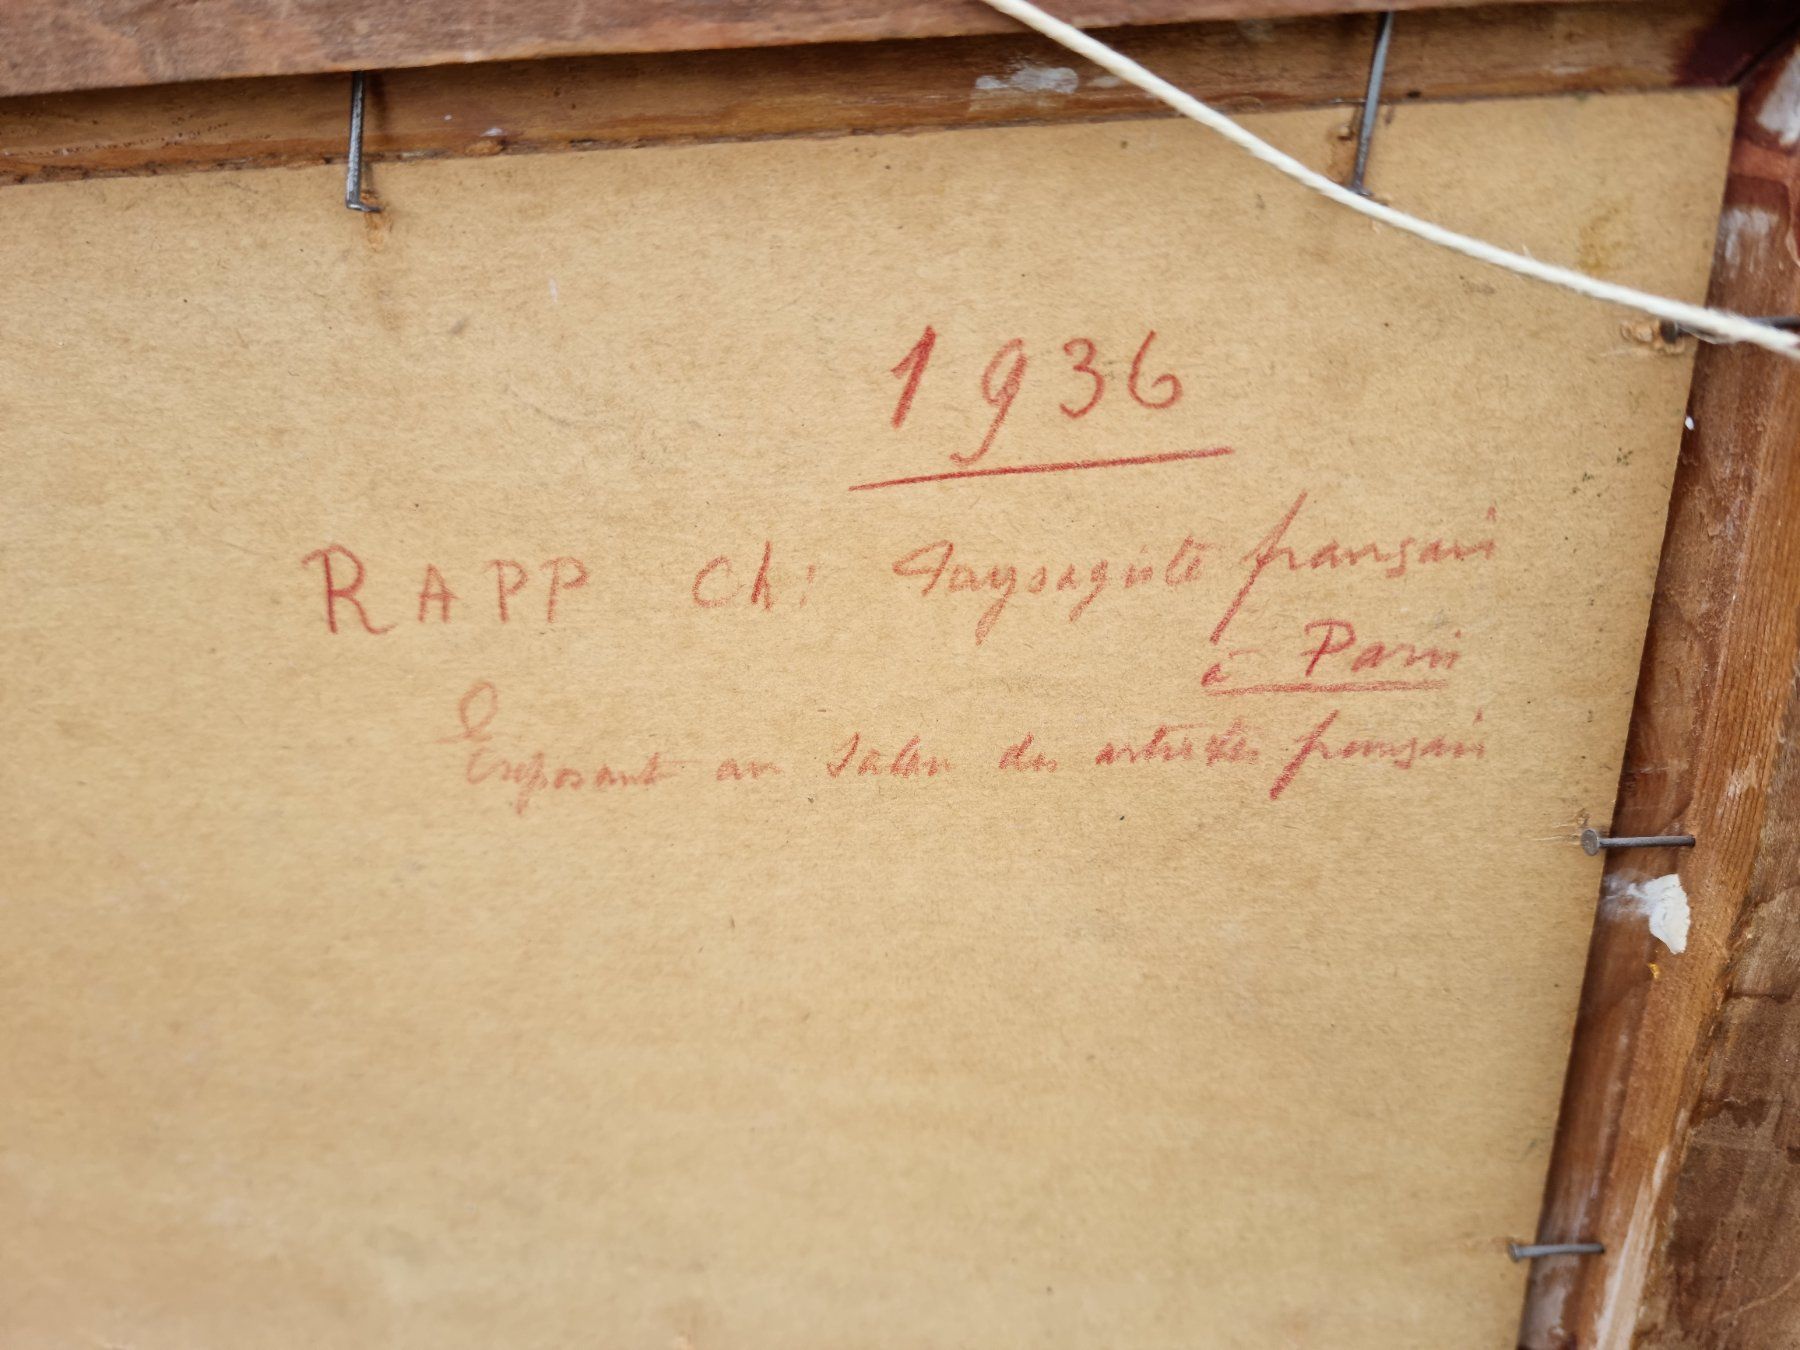 1936
RAPP Ch: Paysagiste français
à Paris
Exposant au Salon des artistes français